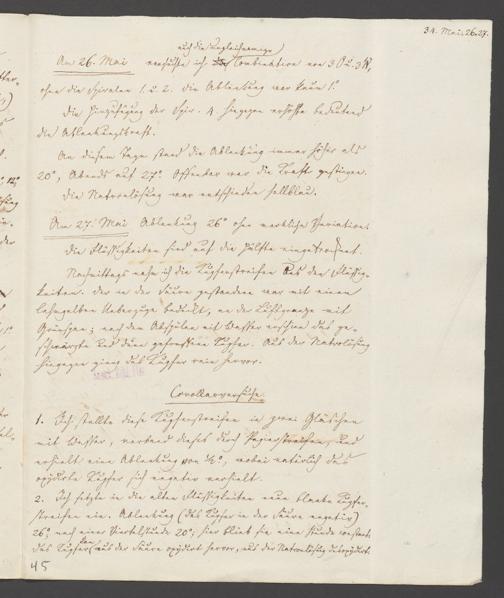 34. Mai. 26. 27.
auch die Ungleichnamige
Am 26. Mai versuchte ich die Combination von 3 Ö u. 3 R,
ohne die Spiralen 1. u. 2. die Ablenkung war kaum 1°
Die Hinzufügung der Spir. 4 hingegen erhöhte bedeutend
die Ablenkungskraft.
An diesem Tage stand die Ablenkung immer höher als
20°, Abends auf 27°. Offenbar war die Kraft gestiegen.
Die Natronlösung war entschieden hellblau.
Am 27. Mai Ablenkung 26° ohne merkliche Variation.
Die Flüssigkeiten sind auf die Hälfte eingetrocknet.
Nachmittags nahm ich die Kupferstreifen aus den Flüssig-
keiten. Der in der Säure gestanden war mit einem
lehmgelben Ueberzuge bedeckt, an der Luftgrenze mit
Grünspan; nach dem Abspülen mit Wasser erschien das ge-
schwärzte und dünn gefressene Kupfer. Aus der Natronlösung
hingegen ging das Kupfer rein hervor.
Corollarversuche.
1. Ich stellte diese Kupferstreifen in zwei Gläschen
mit Wasser, verband dieses durch Papierstreifen, und
erhielt eine Ablenkung von ½°, wobei natürlich das
oxydirte Kupfer sich negativ verhielt.
2. Ich setzte in die alten Flüssigkeiten neue blanke Kupfer-
streifen ein. Ablenkung (das Kupfer in der Säure negativ)
26°; nach einer Viertelstunde 20°; hier blieb sie eine Stunde constant.
das Kupfer aus der Säure oxydirt hervor, aus der Natronlösung desoxydirt.
45